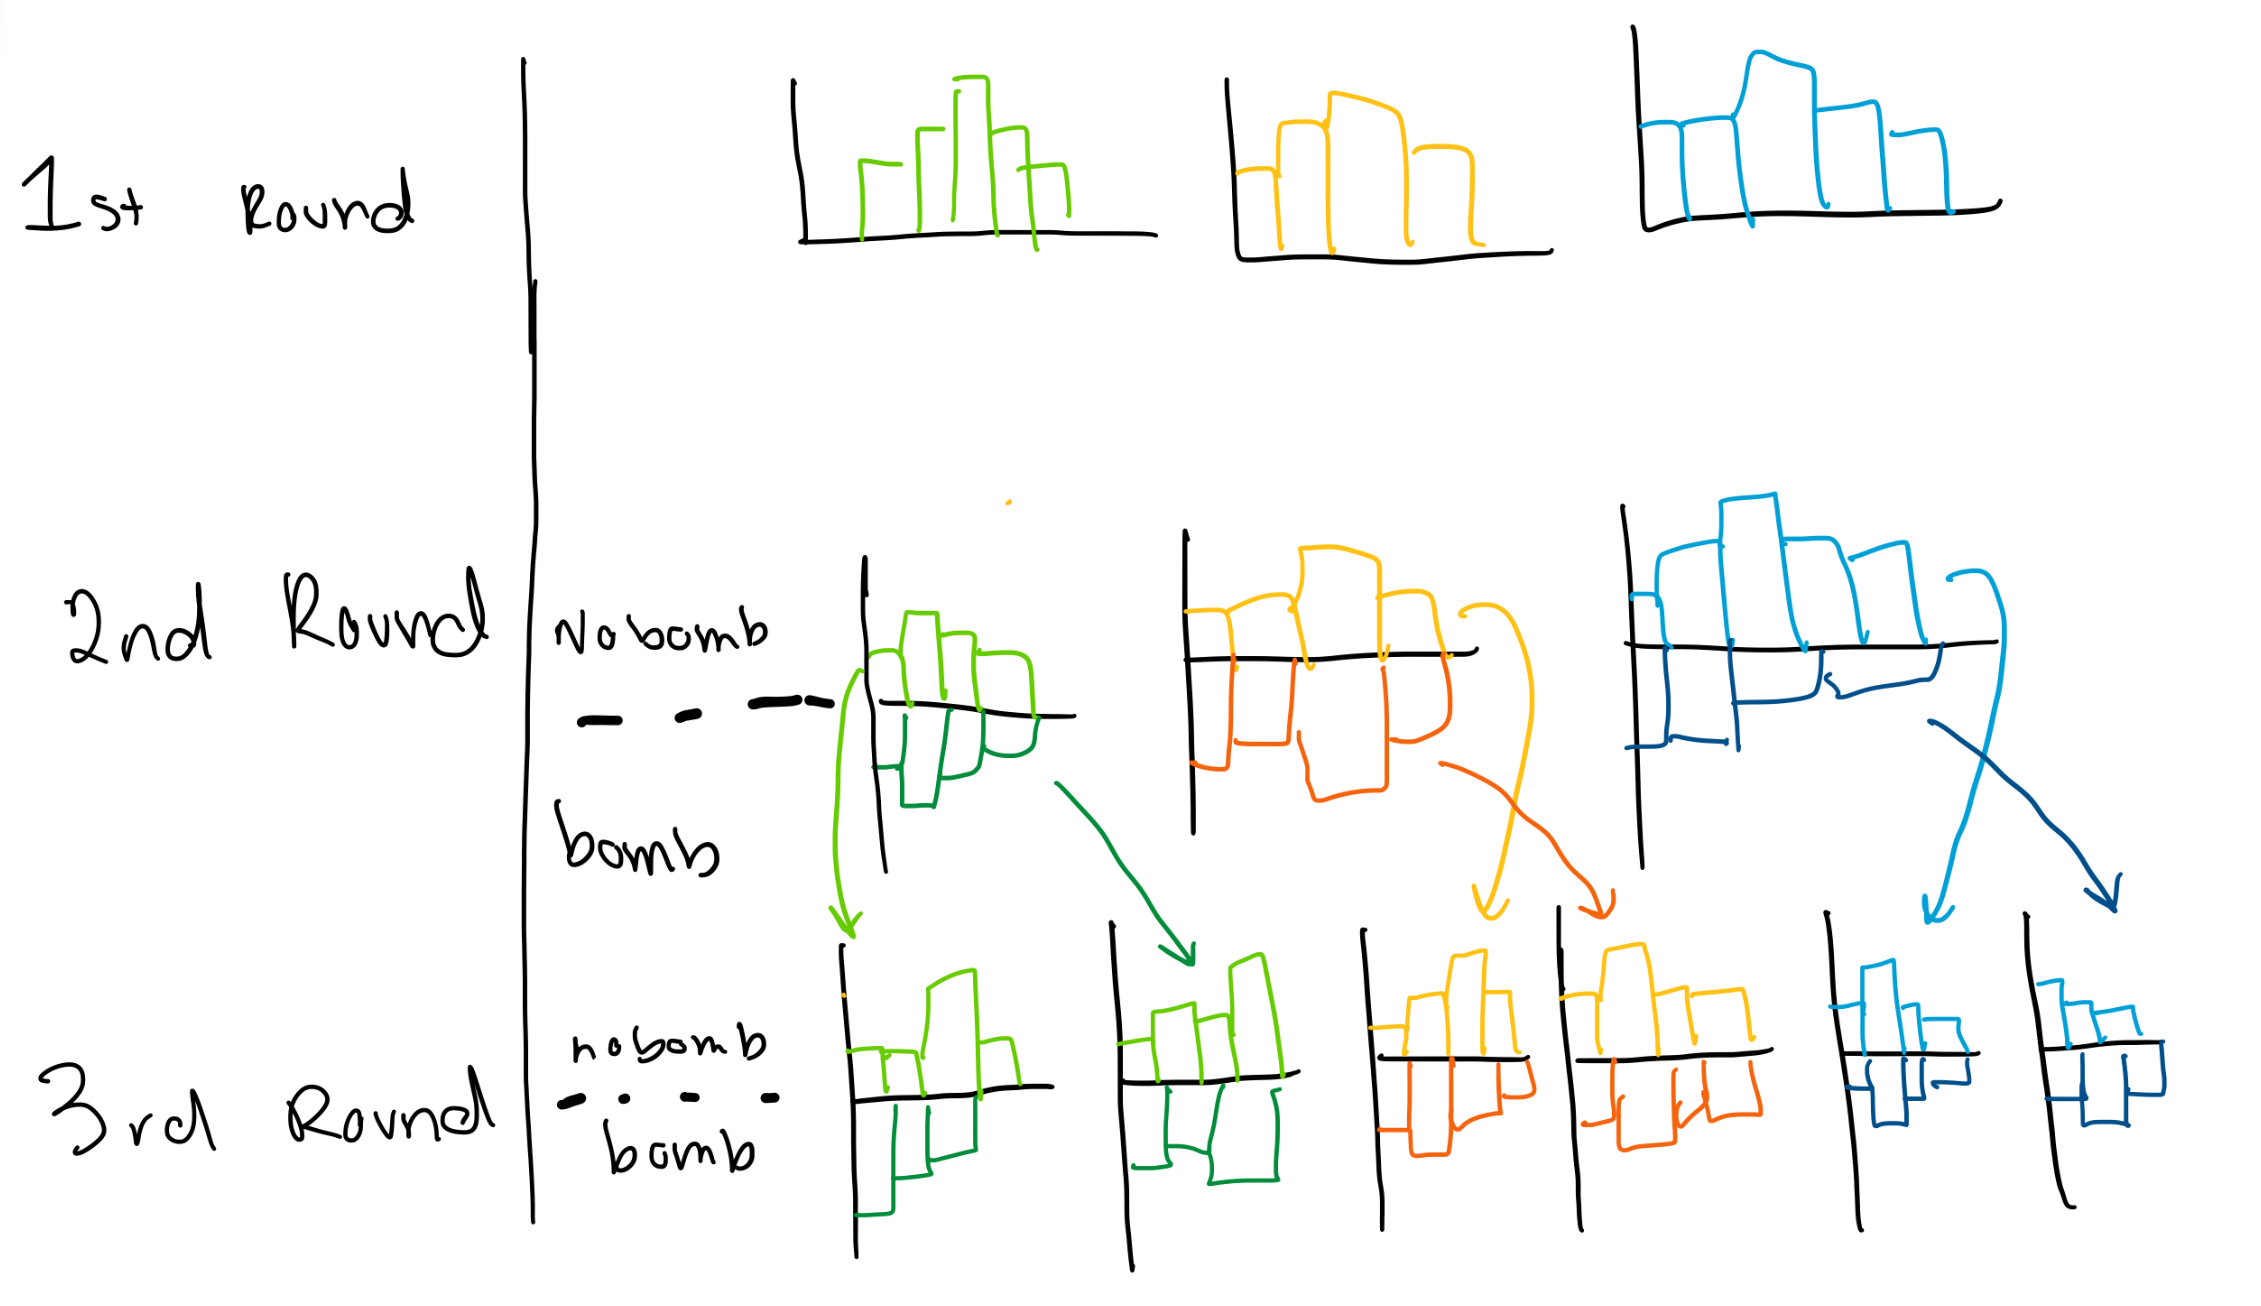 1st Round
2nd Round
No bomb
bomb
3rd Round
no bomb
bomb